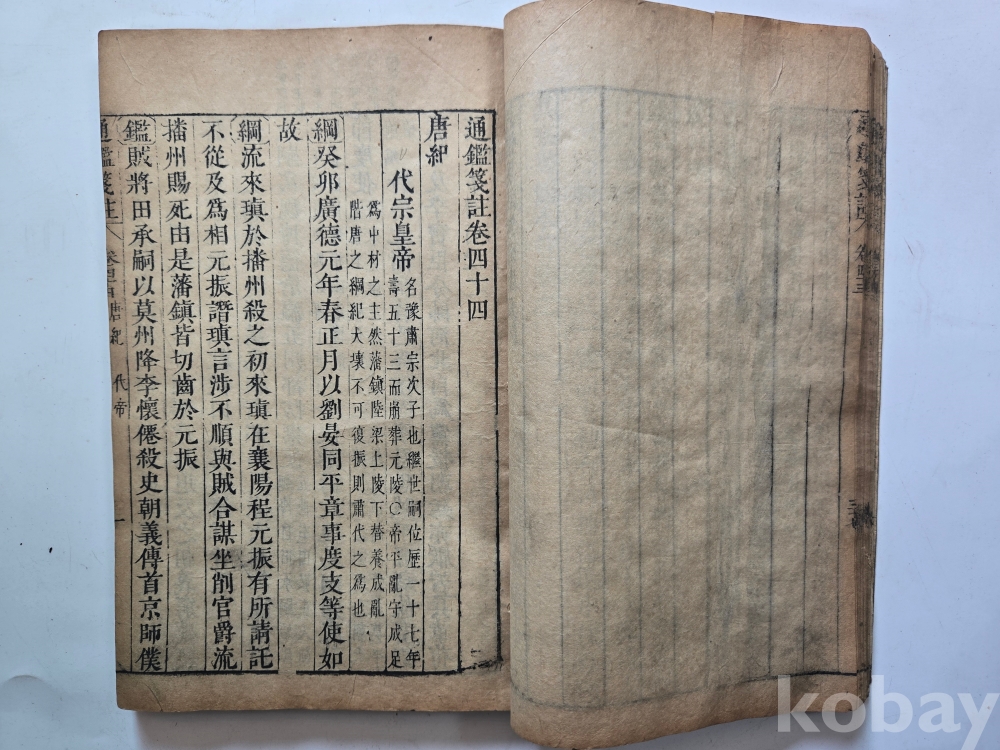 通鑑箋註卷四十四
唐紀
代宗皇帝
名豫肅宗次子也繼世嗣位歷一十七年
壽五十三而崩葬元陵〇帝平亂守成足
爲中材之主然藩鎭陸梁上陵下替養成亂
階唐之綱紀大壞不可復振則肅代之爲也
綱癸卯廣德元年春正月以劉晏同平章事度支等使如
故
綱流來瑱於播州殺之初來瑱在襄陽程元振有所請託
不從及爲相元振譖瑱言涉不順與賊合謀坐削官爵流
播州賜死由是藩鎭皆切齒於元振
鑑賊將田承嗣以莫州降李懷僊殺史朝義傳首京師僕
通鑑箋註 卷四十四 唐紀 代帝 一
通鑑箋註 卷四十三
kobay